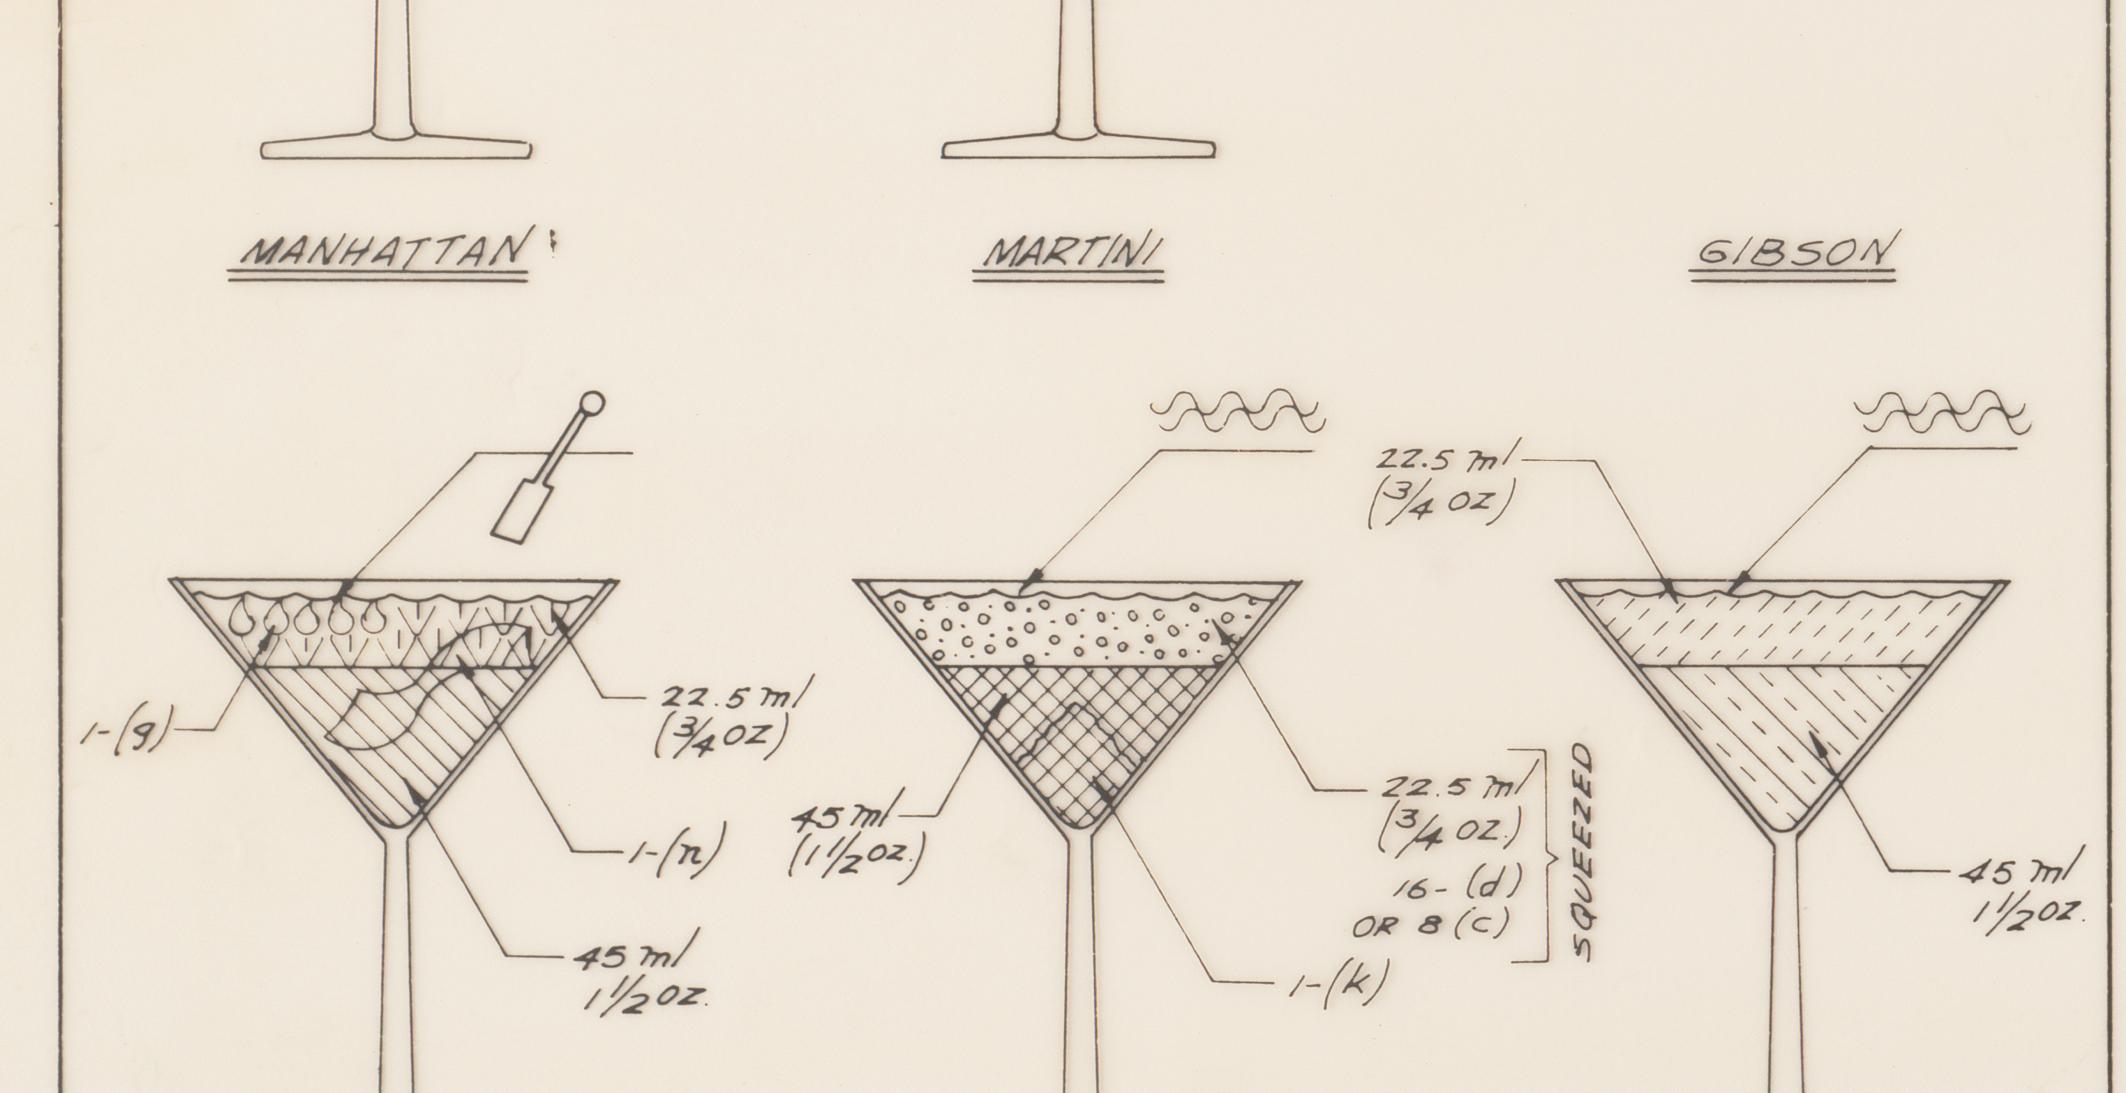 MANHATTAN
MARTINI
GIBSON
22.5 ml
(3/4 OZ)
1-(g)
22.5 ml
(3/4 OZ)
1-(n)
45 ml
1 1/2 OZ.
45 ml
(1 1/2 OZ.)
22.5 ml
(3/4 OZ.)
16- (d)
OR 8 (c)
SQUEEZED
1-(k)
45 ml
1 1/2 OZ.